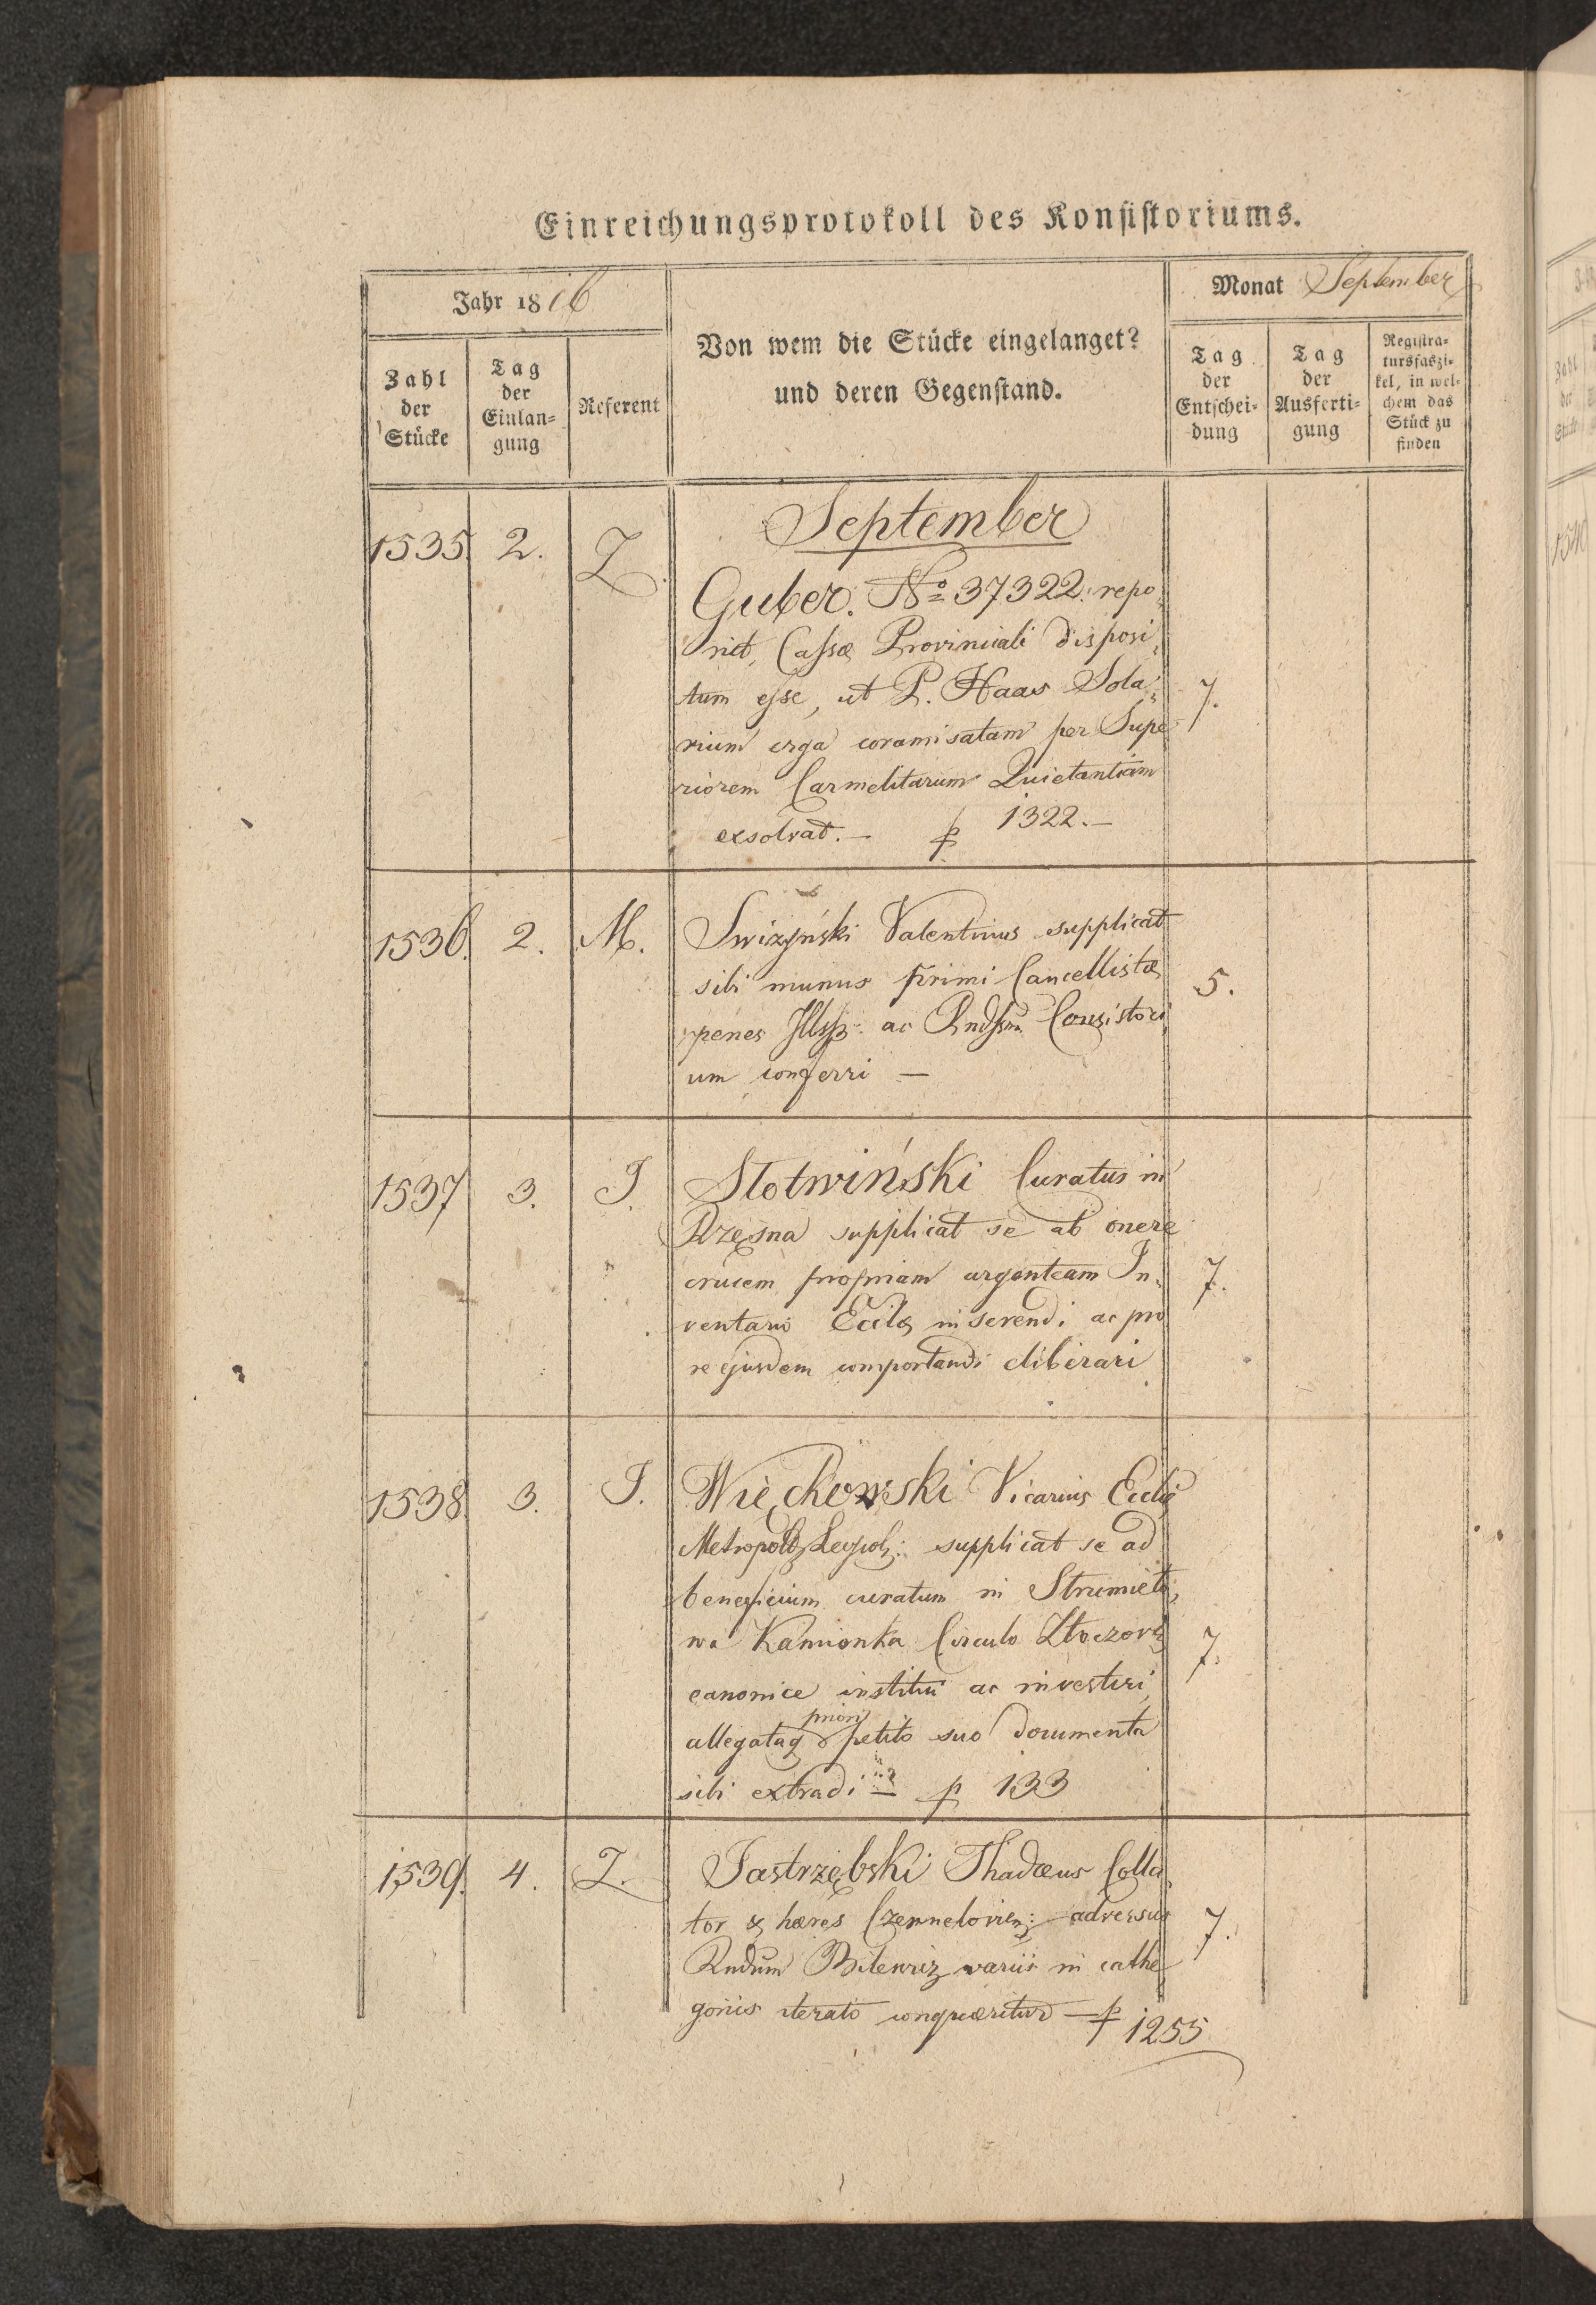 Einreichungsprotokoll des Konsistoriums.
Jahr 1816
Von wem die Stücke eingelanget?
und deren Gegenstand.
Monat September
Zahl
der
Stücke
Tag
der
Einlan=
gung
Referent
Tag
der
Entschei=
dung
Tag
der
Ausferti=
gung
Registra=
tursfaszi=
kel, in wel=
chem das
Stück zu
finden
September
1535. 2. Z.
Guber. No 37322. repo
nit, Cassæ Provinciali disposi
tum esse, ut P. Haas Sola
rium erga coramisatam per Supe
riorem Carmelitarum Quietantiam
exsolvat. — p 1322. —
7.
1536. 2. M. Swizyński Valentinus supplicat
sibi munus primi Cancellistæ
penes ac Consistori
um conferri —
5.
1537 3. J. Słotwiński Curatus in
Rzęsna supplicat se ab onere
crucem propriam argenteam In
ventario Eccls inserendi ac pro
re ejusdem comportandi eliberari
7.
1538. 3. J. Więckowski Vicarius Eccls
supplicat se ad
beneficium curatum in Strumieło
wa Kamionka Circulo Złoczov
canonice institui ac investiri,
allegataq priori petito suo documenta
sibi extradi — p 133
7.
1539. 4. Z. Jastrzębski Thadæus Colla
tor & hæres adversus
Rndum variis in cathe
goriis iterato conquæritur — p 1255
7.